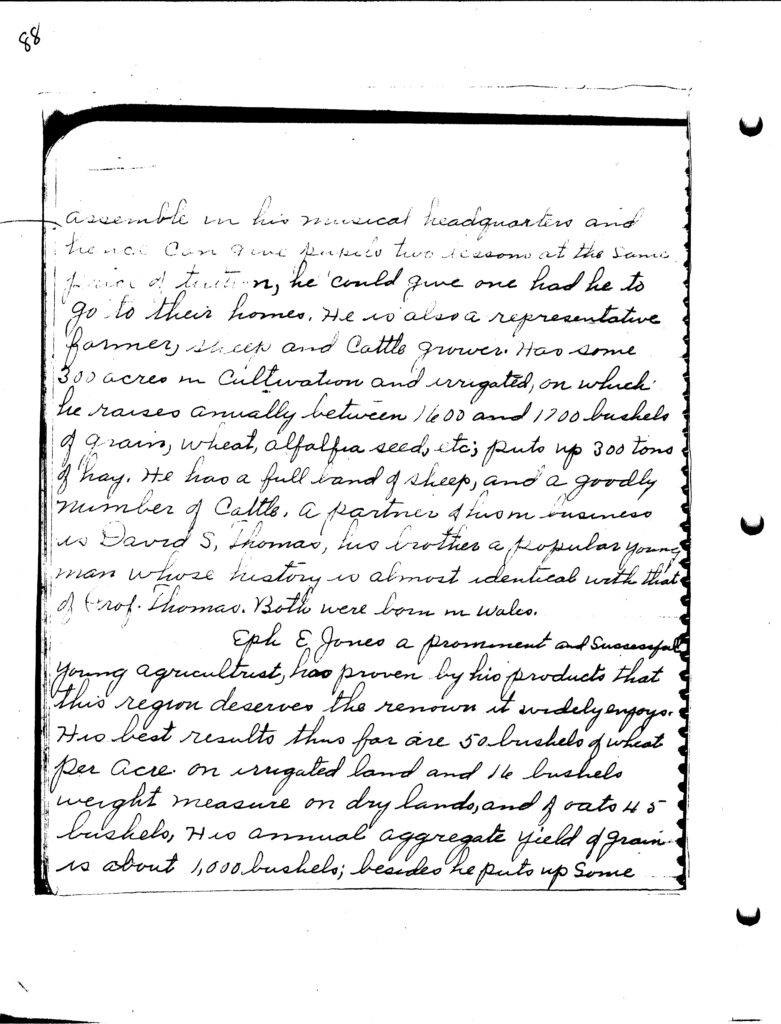 88
assemble in his musical headquarters and
hence can give pupils two lessons at the same
price of tuition, he could give one had he to
go to their homes. He is also a representative
farmer, sheep and Cattle grower. Has some
300 acres in Cultivation and irrigated, on which
he raises anually between 1600 and 1700 bushels
of grain, wheat, alfalfia seed, etc; puts up 300 tons
of hay. He has a full band of sheep, and a goodly
number of Cattle. A partner of his in business
is David S. Thomas, his brother a popular young
man whose history is almost identical with that
of Prof. Thomas. Both were born in Wales.
Eph E. Jones a prominent and Successful
young agricultrist, has proven by his products that
this region deserves the renown it widely enjoys.
His best results thus far are 50 bushels of wheat
per Acre on irrigated land and 16 bushels
weight measure on dry lands, and of oats 45
bushels, His annual aggregate yield of grain
is about 1,000 bushels; besides he puts up Some